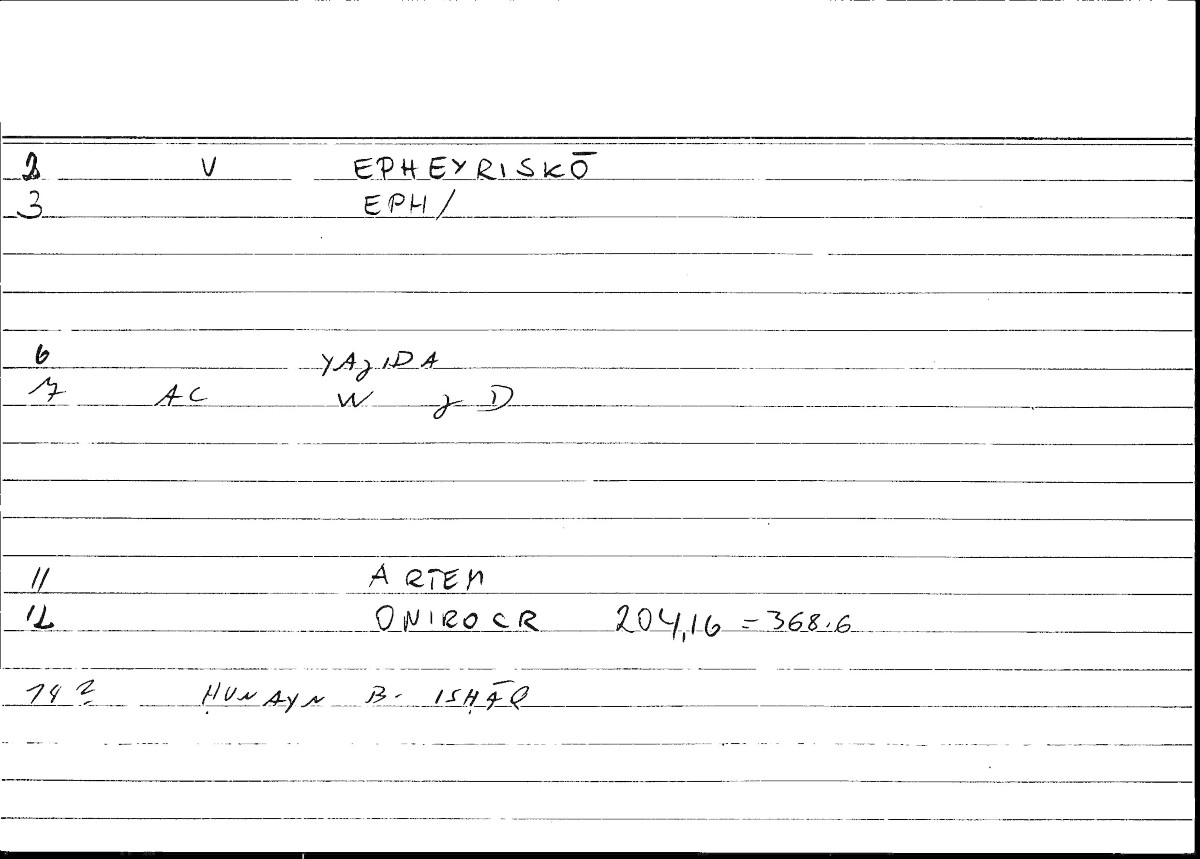 2 V EPHEYRISKŌ
3 EPH/
6 YAʒIDA
7 AC W ʒ D
11 ARTEM
12 ONIROCR 204,16 = 368.6
14 2 ḤUNAYN B. ISḤĀQ